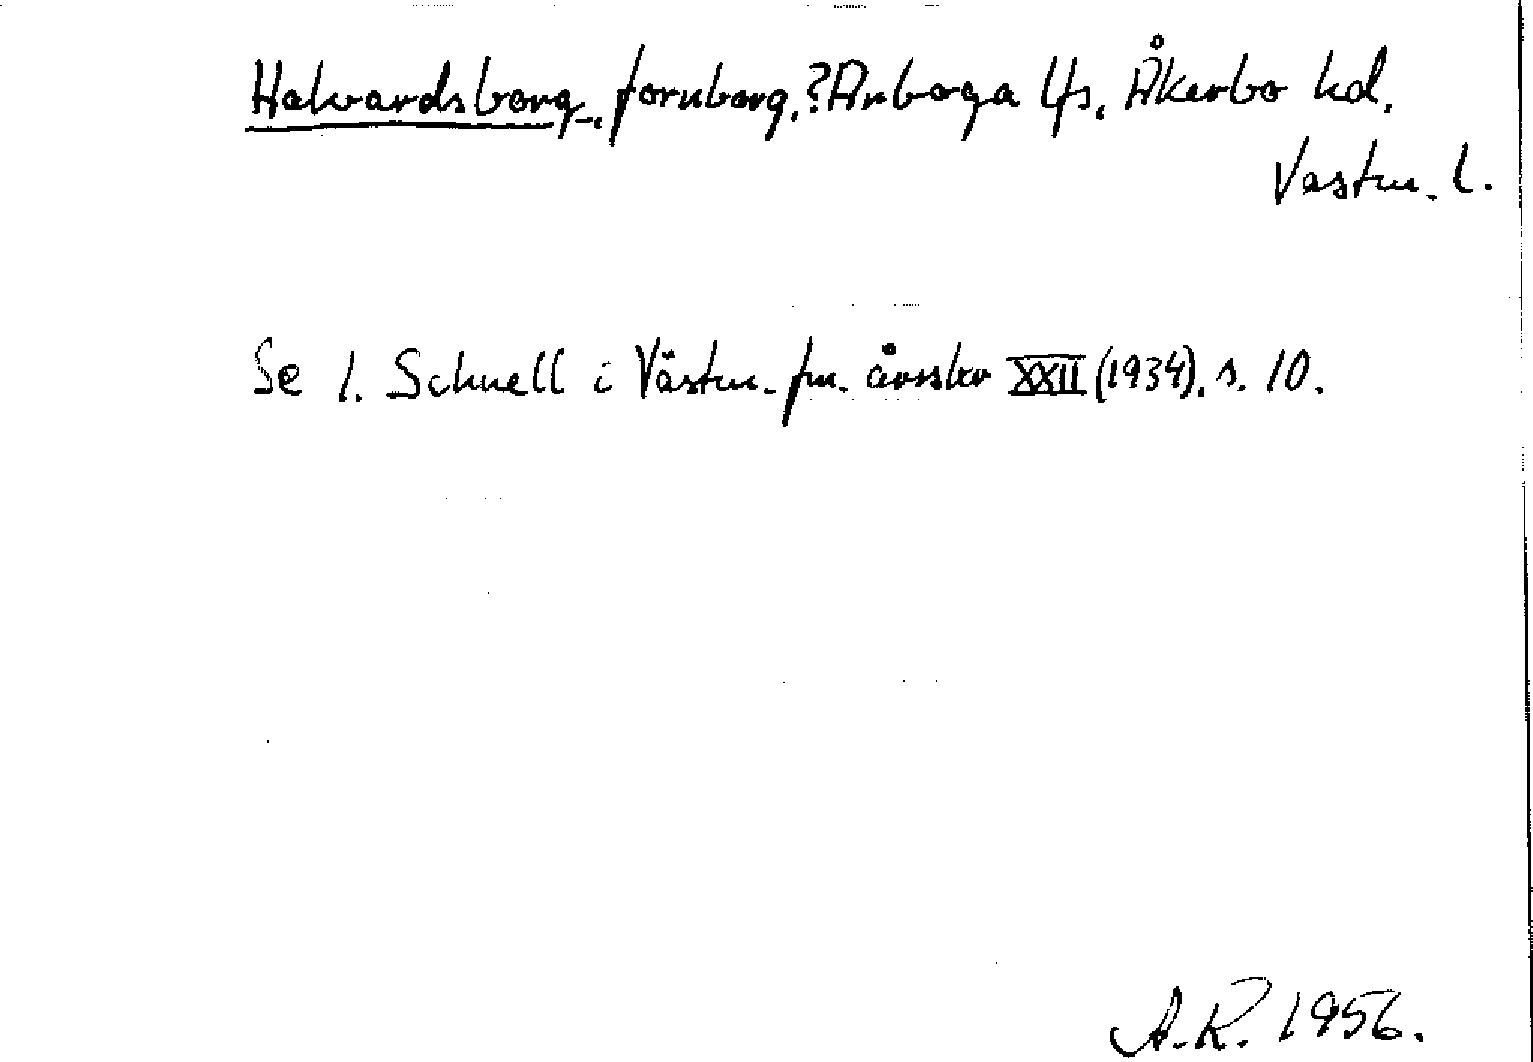 Halvardsborg, fornborg, ?Arboga lfs, Åkerbo hd.
Västm. l.
Se I. Schnell i Västm. fm. årsskr XXII (1934), s. 10.
A.R. 1956.